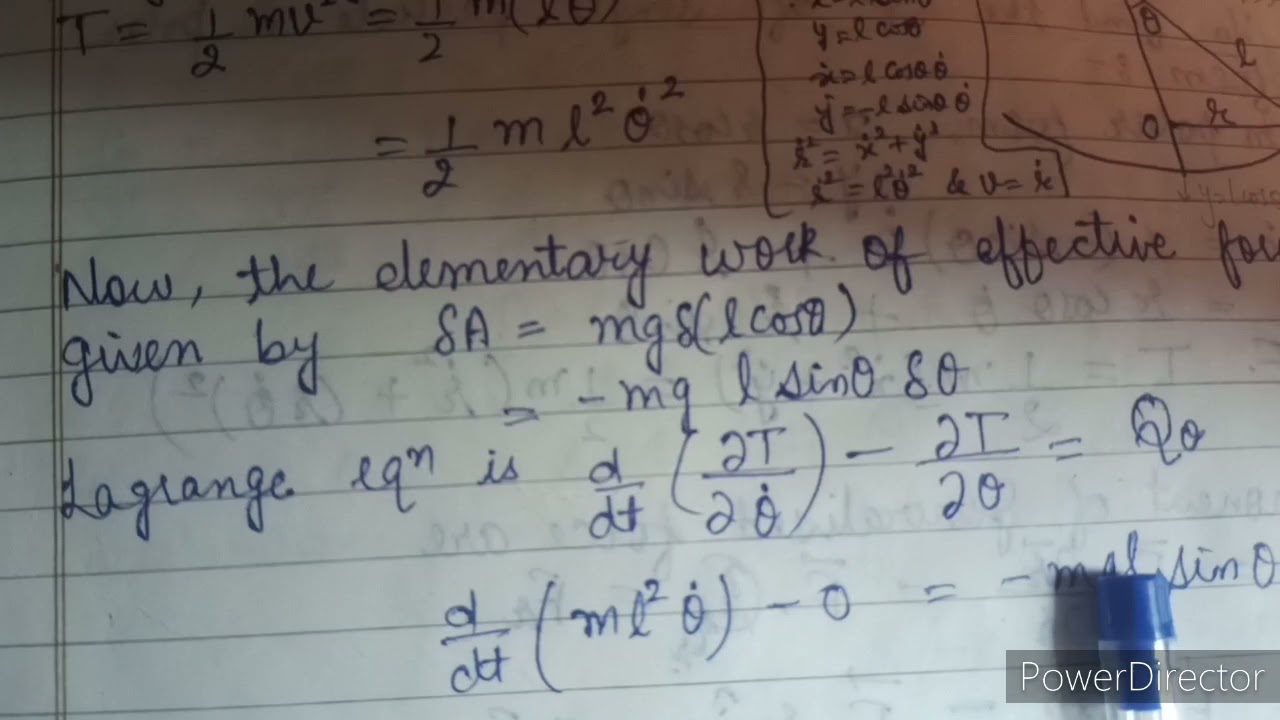 T = 1/2 mv² = 1/2 m(lθ̇)
y = l cosθ
ẋ = l cosθ θ̇
ẏ = -l sinθ θ̇
ṙ² = ẋ² + ẏ²
= l²θ̇² & v = ṙ
θ
l
O
= 1/2 m l² θ̇²
Now, the elementary work of effective
given by δA = mgδ(l cosθ)
= -mg l sinθ δθ
Lagrange eqⁿ is d/dt (∂T/∂θ̇) - ∂T/∂θ = Qθ
d/dt (ml² θ̇) - 0 = - mgl sinθ
PowerDirector